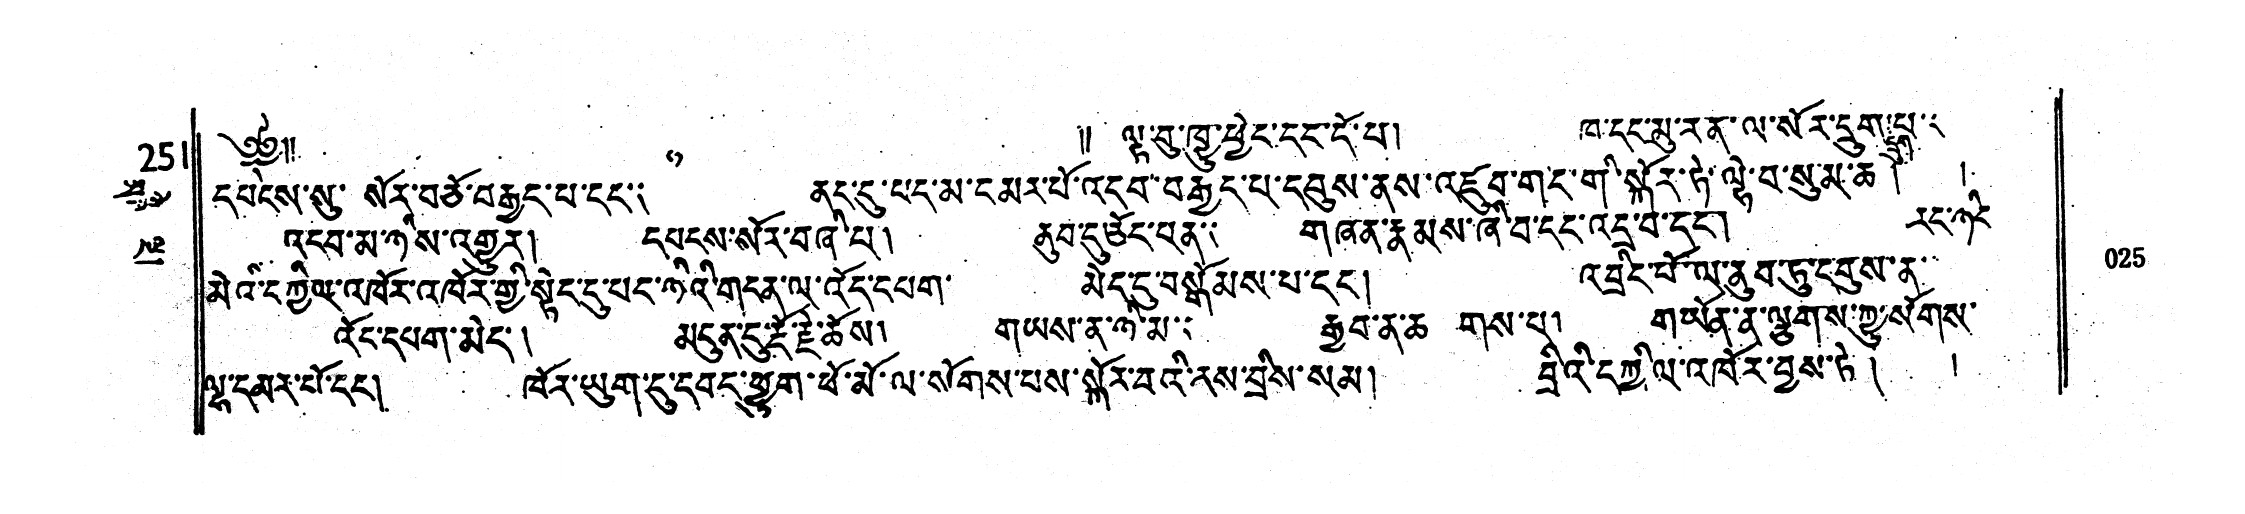 25།
༄༅།།
།། ལྟ་བུ་ཁྱུ་ཕྱེང་དང་དོ་པ། ཁ་དང་མུ་རན་ལ་སོར་དྲུག་
དབྱེངས་སུ་ སོར་བཅོ་བརྒྱད་པ་དང་། ནང་དུ་པད་མ་དམར་པོ་འདབ་བརྒྱད་པ་དབུས་ནས་འཛུབ་གང་གི་སྐོར་ཏེ་ལྟེ་བ་སུམ་ཆ། །
འདབ་མ་ཉིས་འགྱུར། དཔངས་སོར་བཞི་པ། ནུབ་ཏུ་ཙོང་པན། གཞན་རྣམས་ཞི་བ་དང་འདྲ་བ་དང། རང་ཉིད
མེའི་དཀྱིལ་འཁོར་འཁོར་གྱི་སྟེང་དུ་པང་ཉིའི་གདན་ལ་འོད་དཔག་ མེད་དུ་བསྒོམས་པ་དང། འབྲིང་པོ་ལ་ནུབ་ཏུ་དབུས་ན་
འོད་དཔག་མེད། མདུན་དུ་རྡོ་རྗེ་ཆོས། གཡས་ན་ཉི་མ། རྒྱབ་ན་ཆ གས་པ། གཡོན་ན་ལྕགས་ཀྱུ་སོགས་
ལྷ་དམར་པོ་དང། ཁོར་ཡུག་དུ་དབང་ཕྱུག་ཕོ་མོ་ལ་སོགས་པས་སྐོར་བའི་རིས་བྲིས་སམ། བྲིའི་དཀྱིལ་འཁོར་བྱས་ཏེ། །
025